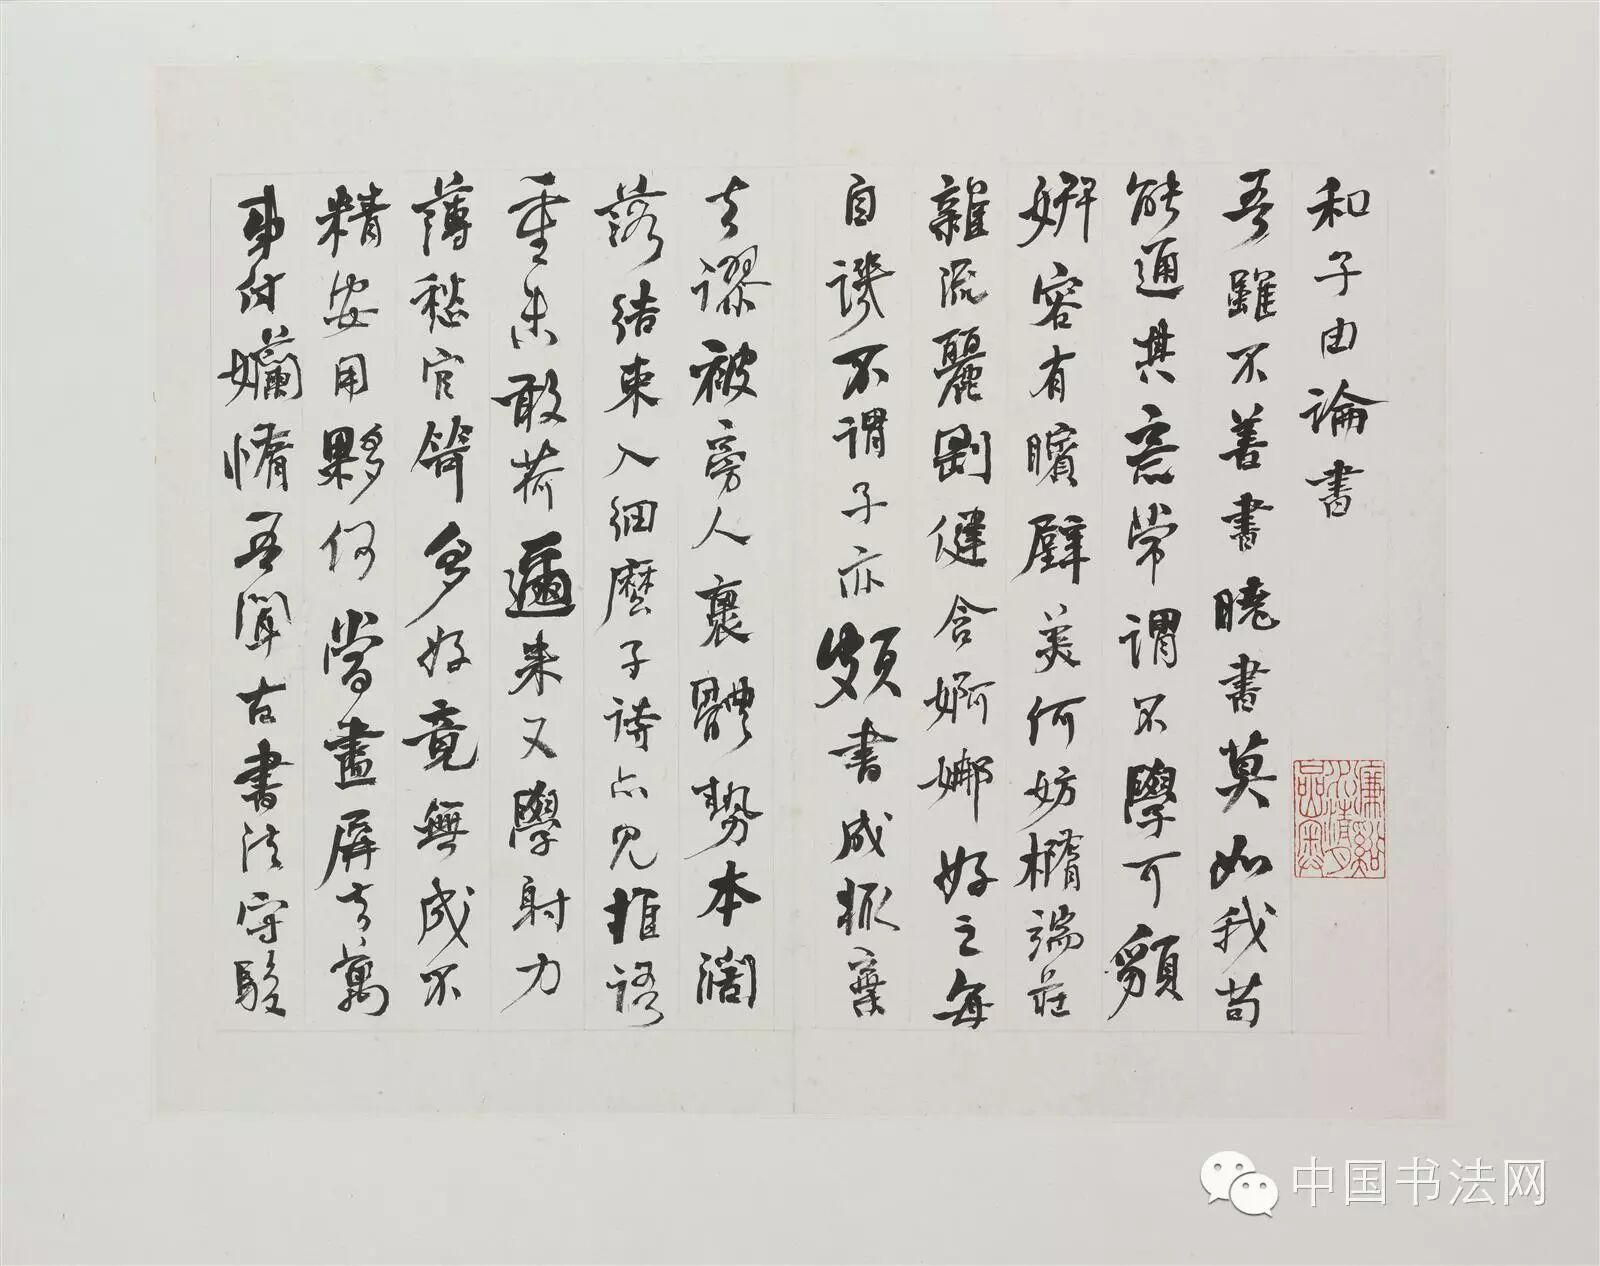 和子由論書
吾雖不善書曉書莫如我苟
能通其意常謂不學可貌
妍容有矉璧美何妨橢端莊
雜流麗剛健含婀娜好之每
自譏不謂子亦頗書成輒棄
去謬被旁人裹體勢本闊
落結束入細麼子詩亦見推語
重未敢荷邇来又學射力
薄愁官笴多好竟無成不
精安用夥何當盡屏去萬
事付嬾惰吾聞古書法守駿
中国书法网